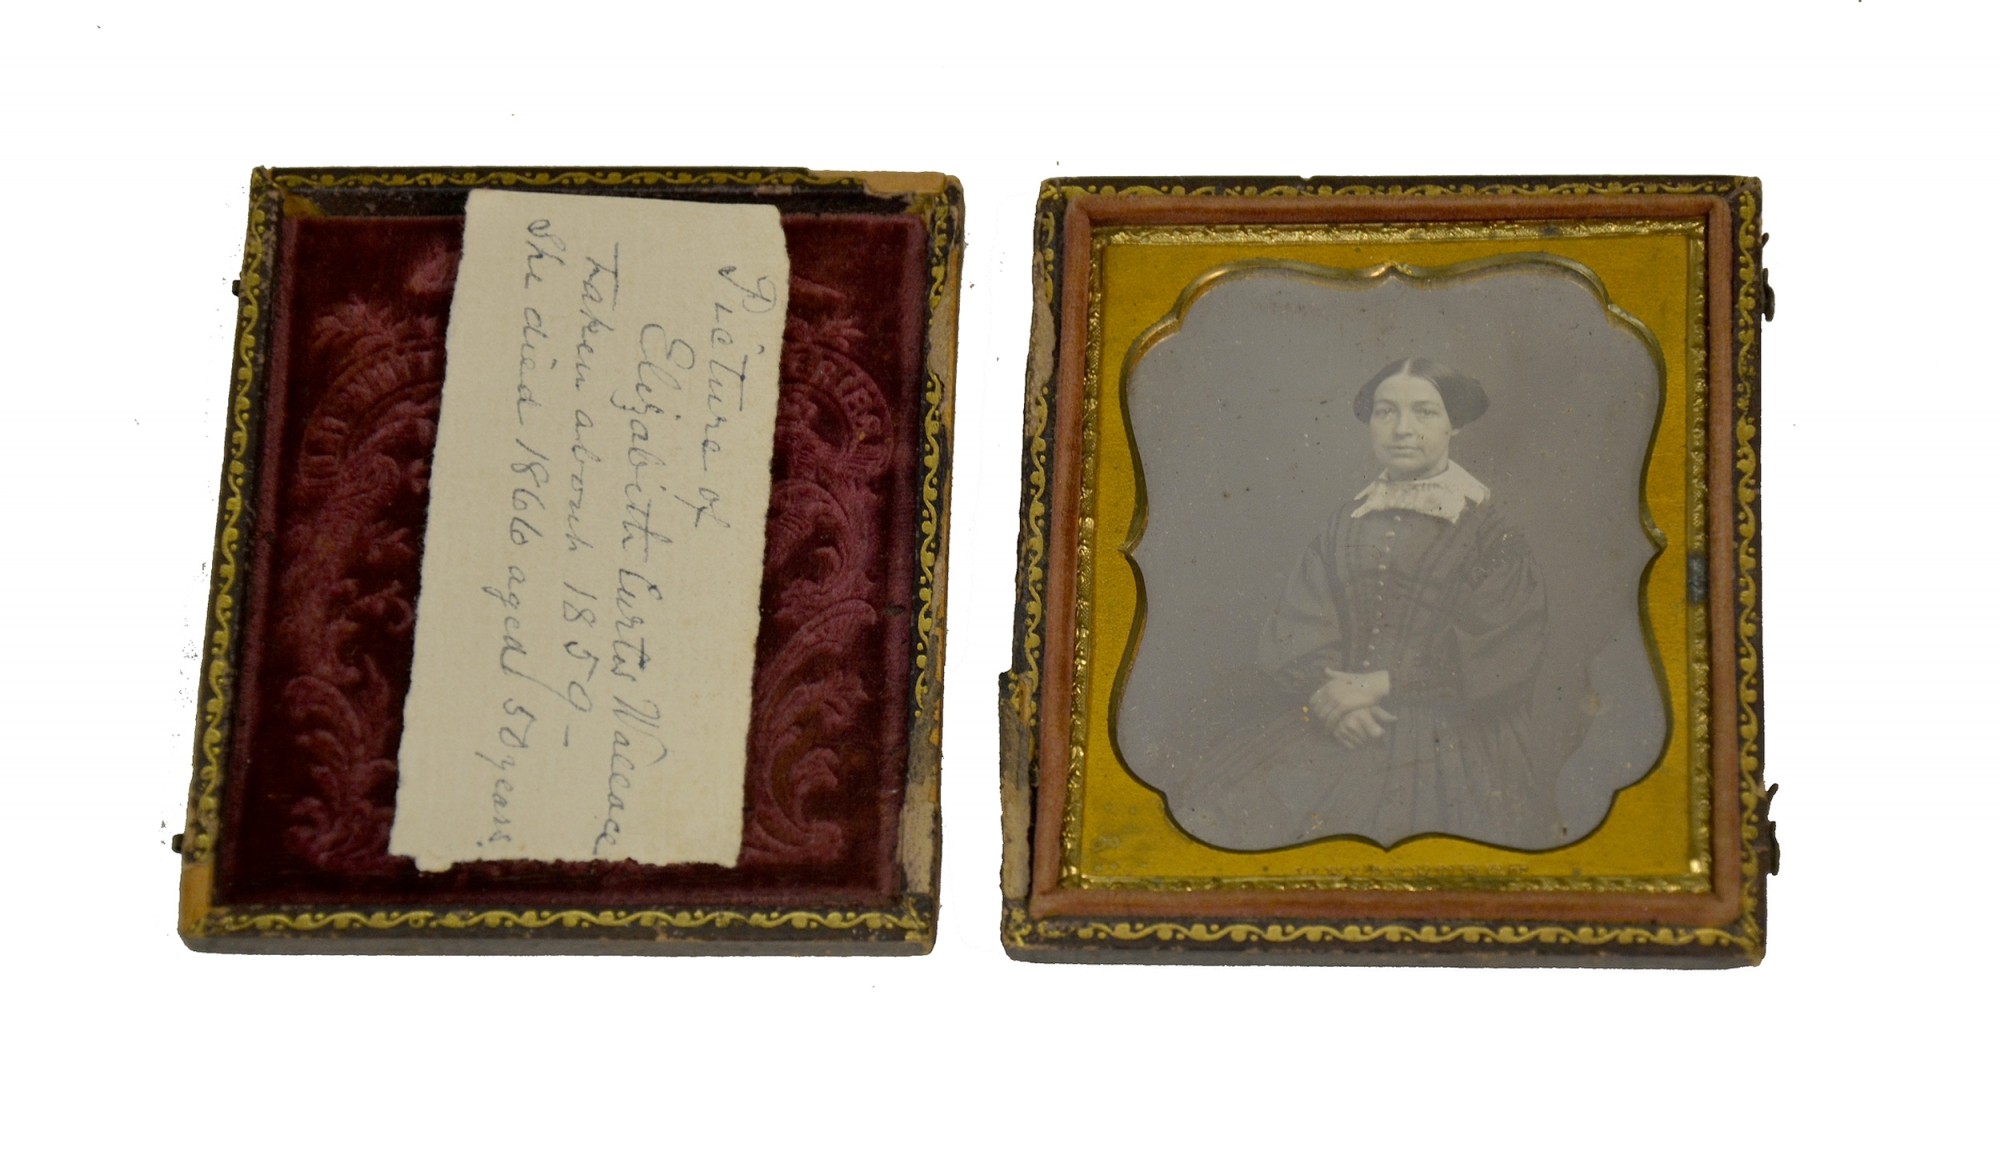 Picture of
Elizabith Curtis Wallace
Taken about 1859-
She died 1866 aged 50 years.